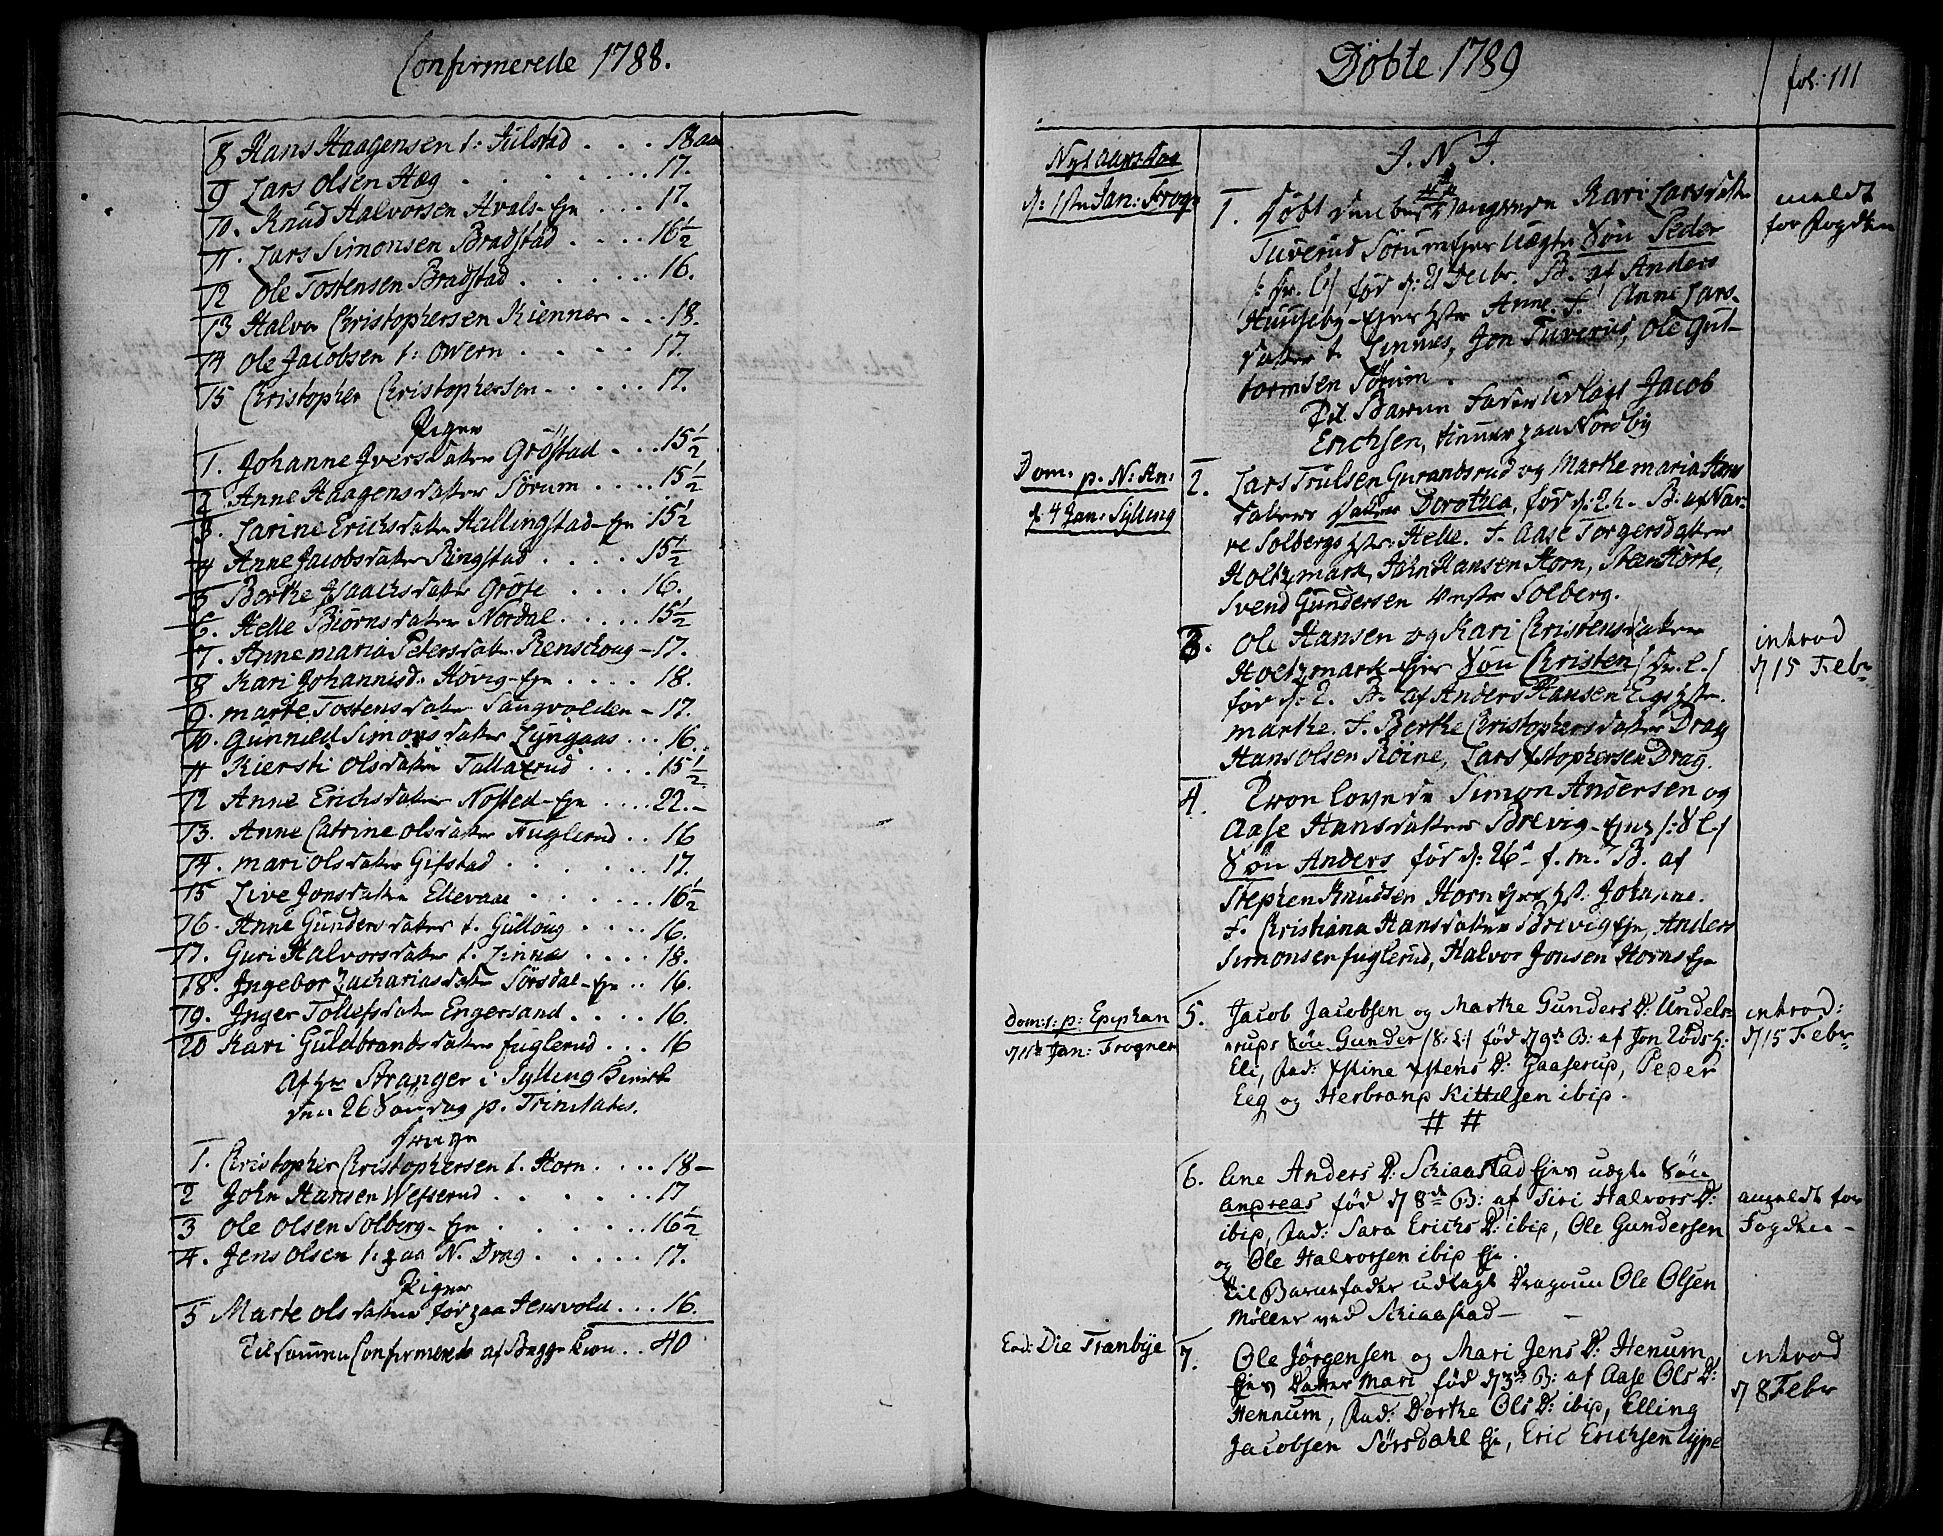 Confirmerede 1788.
8 Hans Haagensen t: Julstad . . . 18 aar
9 Lars Olsen Hæg . . . . . . 17.
10. Knud Halvorsen Hvals-Eje . . . 17.
11. Lars Simonsen Bradstad . . . . 16½
12 Ole Tostensen Bradstad . . . . . 16.
13 Halvor Christophersen Kienner . . . 18.
14 Ole Jacobsen t: Owern . . . . . 17.
15 Christopher Christophersen . . . . . 17.
Piger
1. Johanne Iversdatter Gröstad . . . 15½
2 Anne Haagensdatter Sörum . . . . 15½
3. Karine Erichsdatter Hallingstad-Eje 15½
4 Anne Jacobsdatter Ringstad . . . . 15½
5 Berthe Isaachsdatter Gröte . . . . 16.
6. Helle Biörnsdatter Nordal . . . . . 15½
7. Anne maria Petersdatr. Renschoug - 17.
8 Kari Johannisd: Hövig-Eje . . . . 18.
9. marte Tostensdatter Sangvolden - 17.
10. Gunnild Simonsdatter Lyngaas . . . 16.
11 Kiersti Olsdatter Tallaxrud . . . . 15½
12 Anne Erichsdatter Nosted-Eje . . . . 22.-
13. Anne Catrine Olsdatter Fuglerud . . 16
14. mari Olsdatter Gifstad . . . . . 17.
15 Live Jonsdatter Ellevaae . . . . . 16½
16. Anne Gundersdatter t. Gulloug . . . . 16.
17. Guri Halvorsdatter t. Linnes . . . . 18.
18. Ingebor Zachariasdattr Sörsdal-Eje . . 16.
19. Inger Tollefsdatter Engersand . . . . 16.
20 Kari Guldbrandsdatter fuglerud . . . 16
Af Hr Stranger i Sylling
den 26 Söndag p. Trinitatis.
Drenge
1. Christopher Christophersen t. Horn . . . . 18-
2 John Hansen Wefserud . . . . . . 17
3 Ole Olsen Solberg-Eje . . . . . . 16½
4. Jens Olsen t. paa N. Drag . . . . . 17.
Piger
5 Marte Olsdatter för paa Jensvold . . . 16.
Tilsammen Confirmerede af Begge Kiön . . 40
Döbte 1789
fol: 111
Nyt aars Dag
d: 1ste Jan: Frogn
J. N. J.
1. Döbt den Kari Larsdatter
Tuverud Sörumejer Uægte Sön Peder
/: Sv. l:/ föd d: 21 Decbr. B. af Anders
Huuseby-Ejer Hstr Anne. F. Anne Lars-
datter t. Linnes, Jon Tuverud, Ole Gul-
bormsen Sörum.
Til Barne Fader Udlagt Jacob
Erichsen, tienner paa Nordby
meldt
for fogden
Dom. p. N: An:
d: 4 Jan: Sylling
2. Lars Trulsen Gurandsrud og Marthe maria Hans
datters datter Dorothea, föd d: 2. h. B: af Nar-
ve Solbergs Hstr: Helle. F. Aase Torgersdatter
Holtzmark, John Hansen Horn, Sven Horte,
Svend Gundersen Vestr Solberg.
3. Ole Hansen og Kari Christensdatter
Holtzmark-Ejer Sön Christen /: Sv. l:/
föd d: 2. B. af Anders Hansen Egs Hstr.
marthe. F. Berthe Christophersdatter Drag
Hans Olsen Röine, Lars Xstophersen Drag.
introd
d 15 Febr
4. Trolovede Simon Andersen og
Aase Hansdatter Brevig-Ejes /: S l:/
Sön Anders föd d: 26 f. m. B. af
Stephen Knudsen Horn Ejes Hst. Johanne.
F. Christiana Hansdatter Brevig Eje, Anders
Simonsen fuglerud, Halvor Jonsen Horns Eje
Dom: 1. p: Epiphan
d 11te Jan: Frogner
5. Jacob Jacobsen og Marthe Gunders D: Undels-
rups Sön Gunder /S: L:/ föd d 9de B: af Jon Löds H:
Eli, Fad: Xstine Xstens D: Gaaserup, Peder
Eeg og Herbranp Kittilsen ibip.
# #
introd:
d 15 Febr
6. Ane Anders D: Skiaastad Ejes uægte Sön
Andreas föd d 8de B: af Siri Halvors D:
ibip, Fad: Sara Erichs D: ibip, Ole Gundersen
og Ole Halvorsen ibip Eje.
til Barnefader udlagt Dragoun Ole Olsen
Möller ved Skiaastad-
anmeldt for
Fogden -
Eod: Die Tranbÿe
7. Ole Jörgensen og Mari Jens D: Henum
Ejes Datter Mari föd d 3de B: af Aase Ols D:
Hennum, Fad: Dorthe Ols D: ibip, Elling
Jacobsen Sörsdahl Eje, Eric Erichsen
introd
d 8 Febr